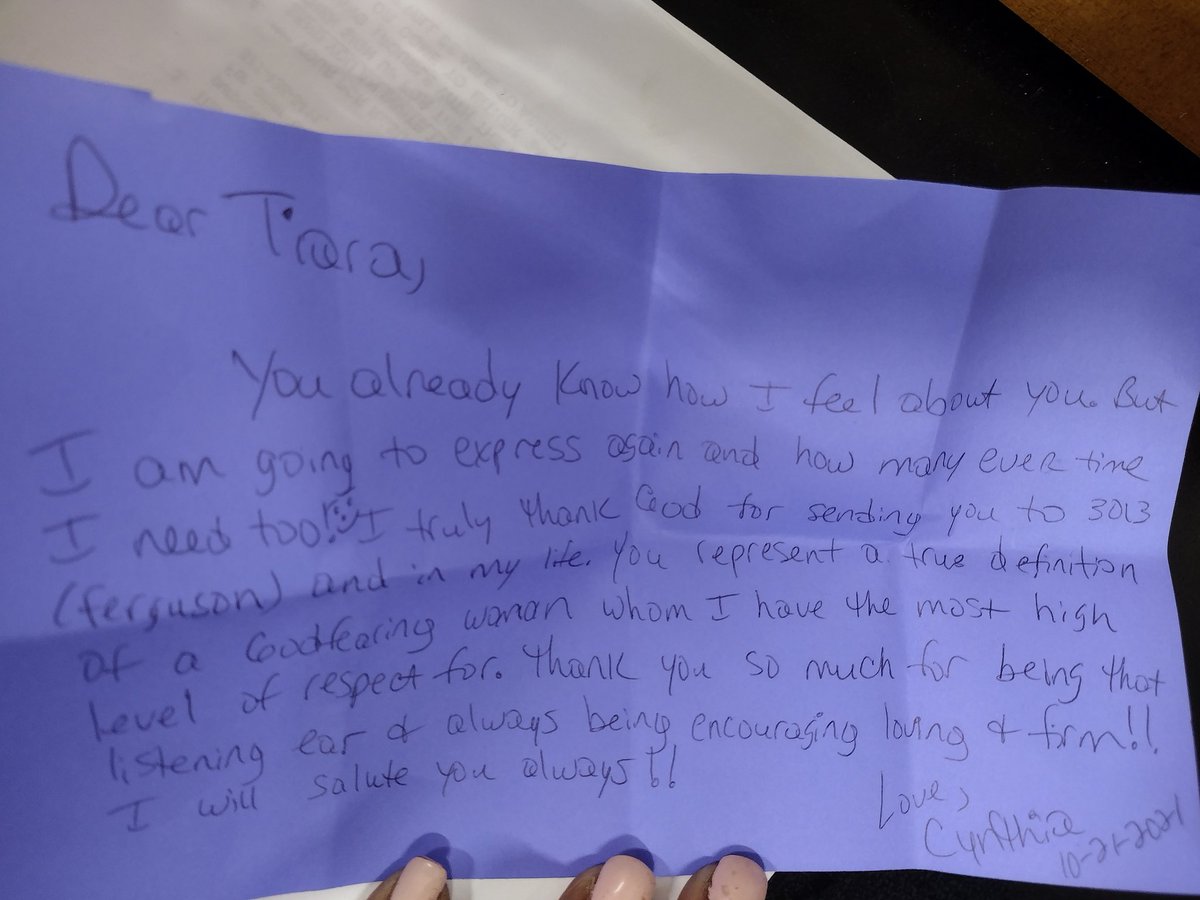 Dear Tiara,
You already know how I feel about you. But
I am going to express again and how many ever time
I need too! I truly thank God for sending you to 3013
(ferguson) and in my life. You represent a true definition
of a Godfearing woman whom I have the most high
level of respect for. Thank you so much for being that
listening ear & always being encouraging loving & firm!!
I will salute you always!!
Love,
Cynthia
10-21-2021